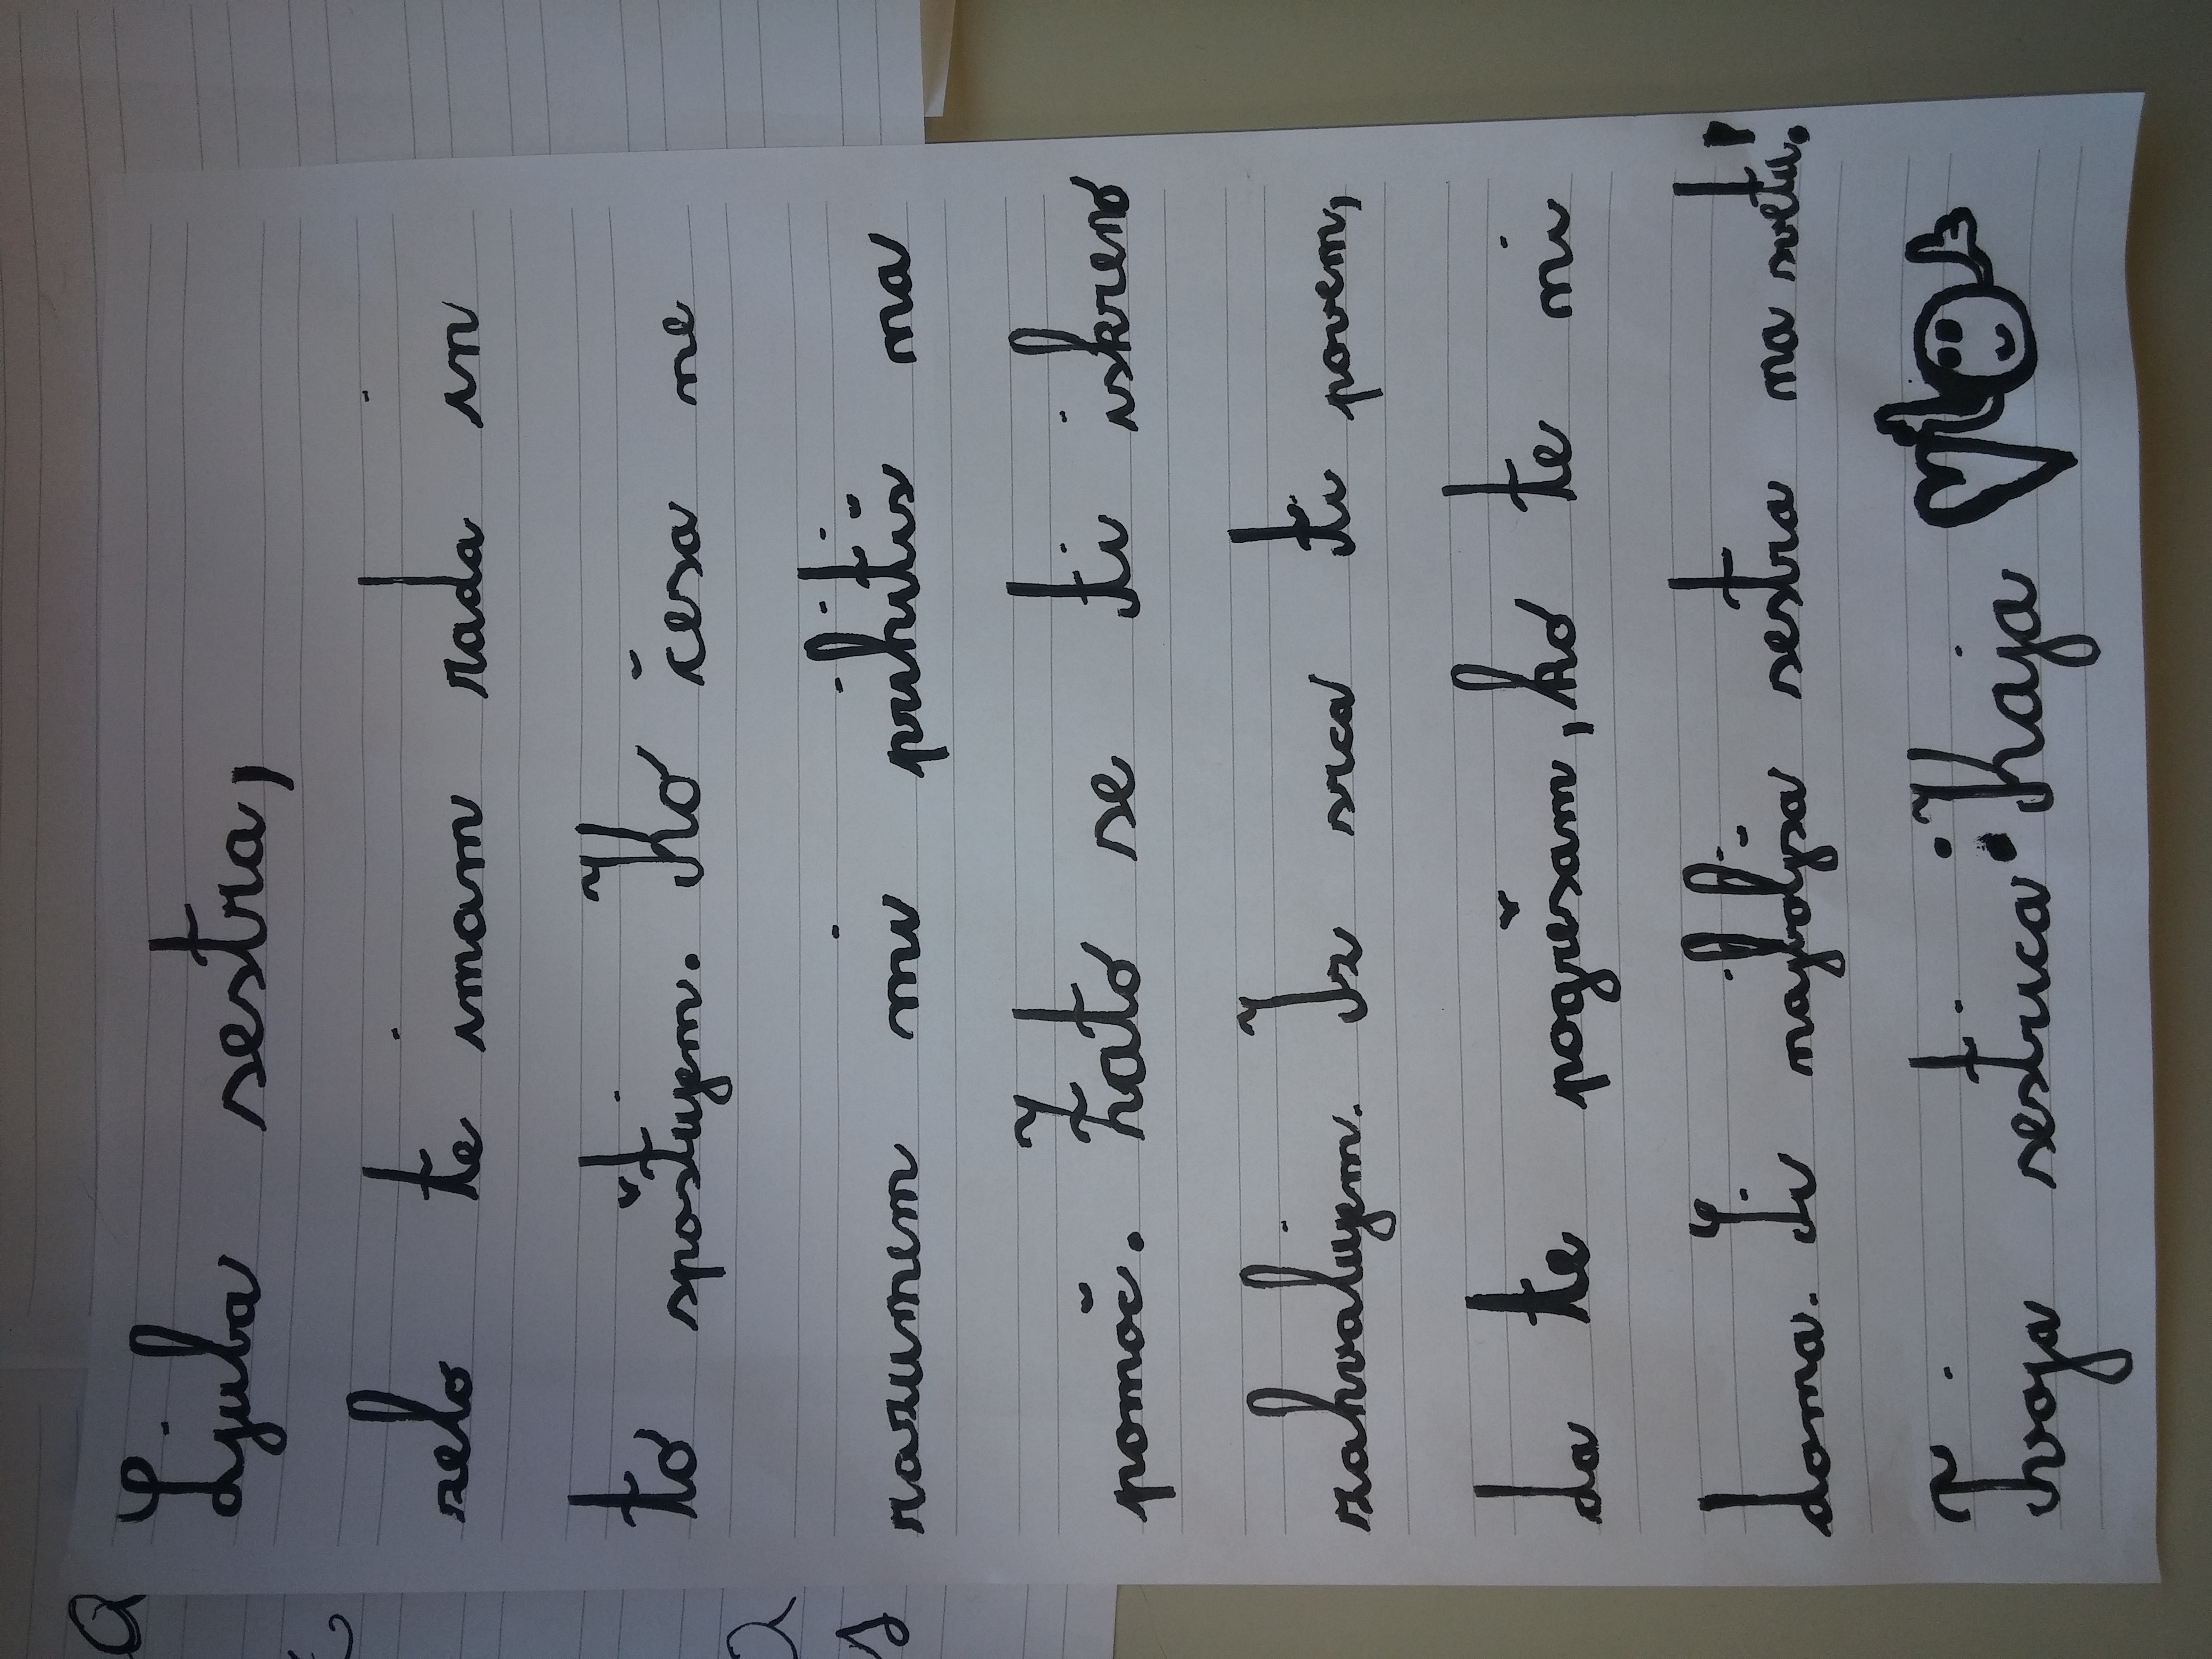 Ljuba sestra,
zelo te imam rada in
to spoštujem. Ko česa ne
razumem mi prihitiš na
pomoč. Zato se ti iskreno
zahvaljujem. Iz srca ti povem,
da te pogrešam, ko te ni
doma. Si najboljša sestra na svetu!
Tvoja sestrica: Kaja